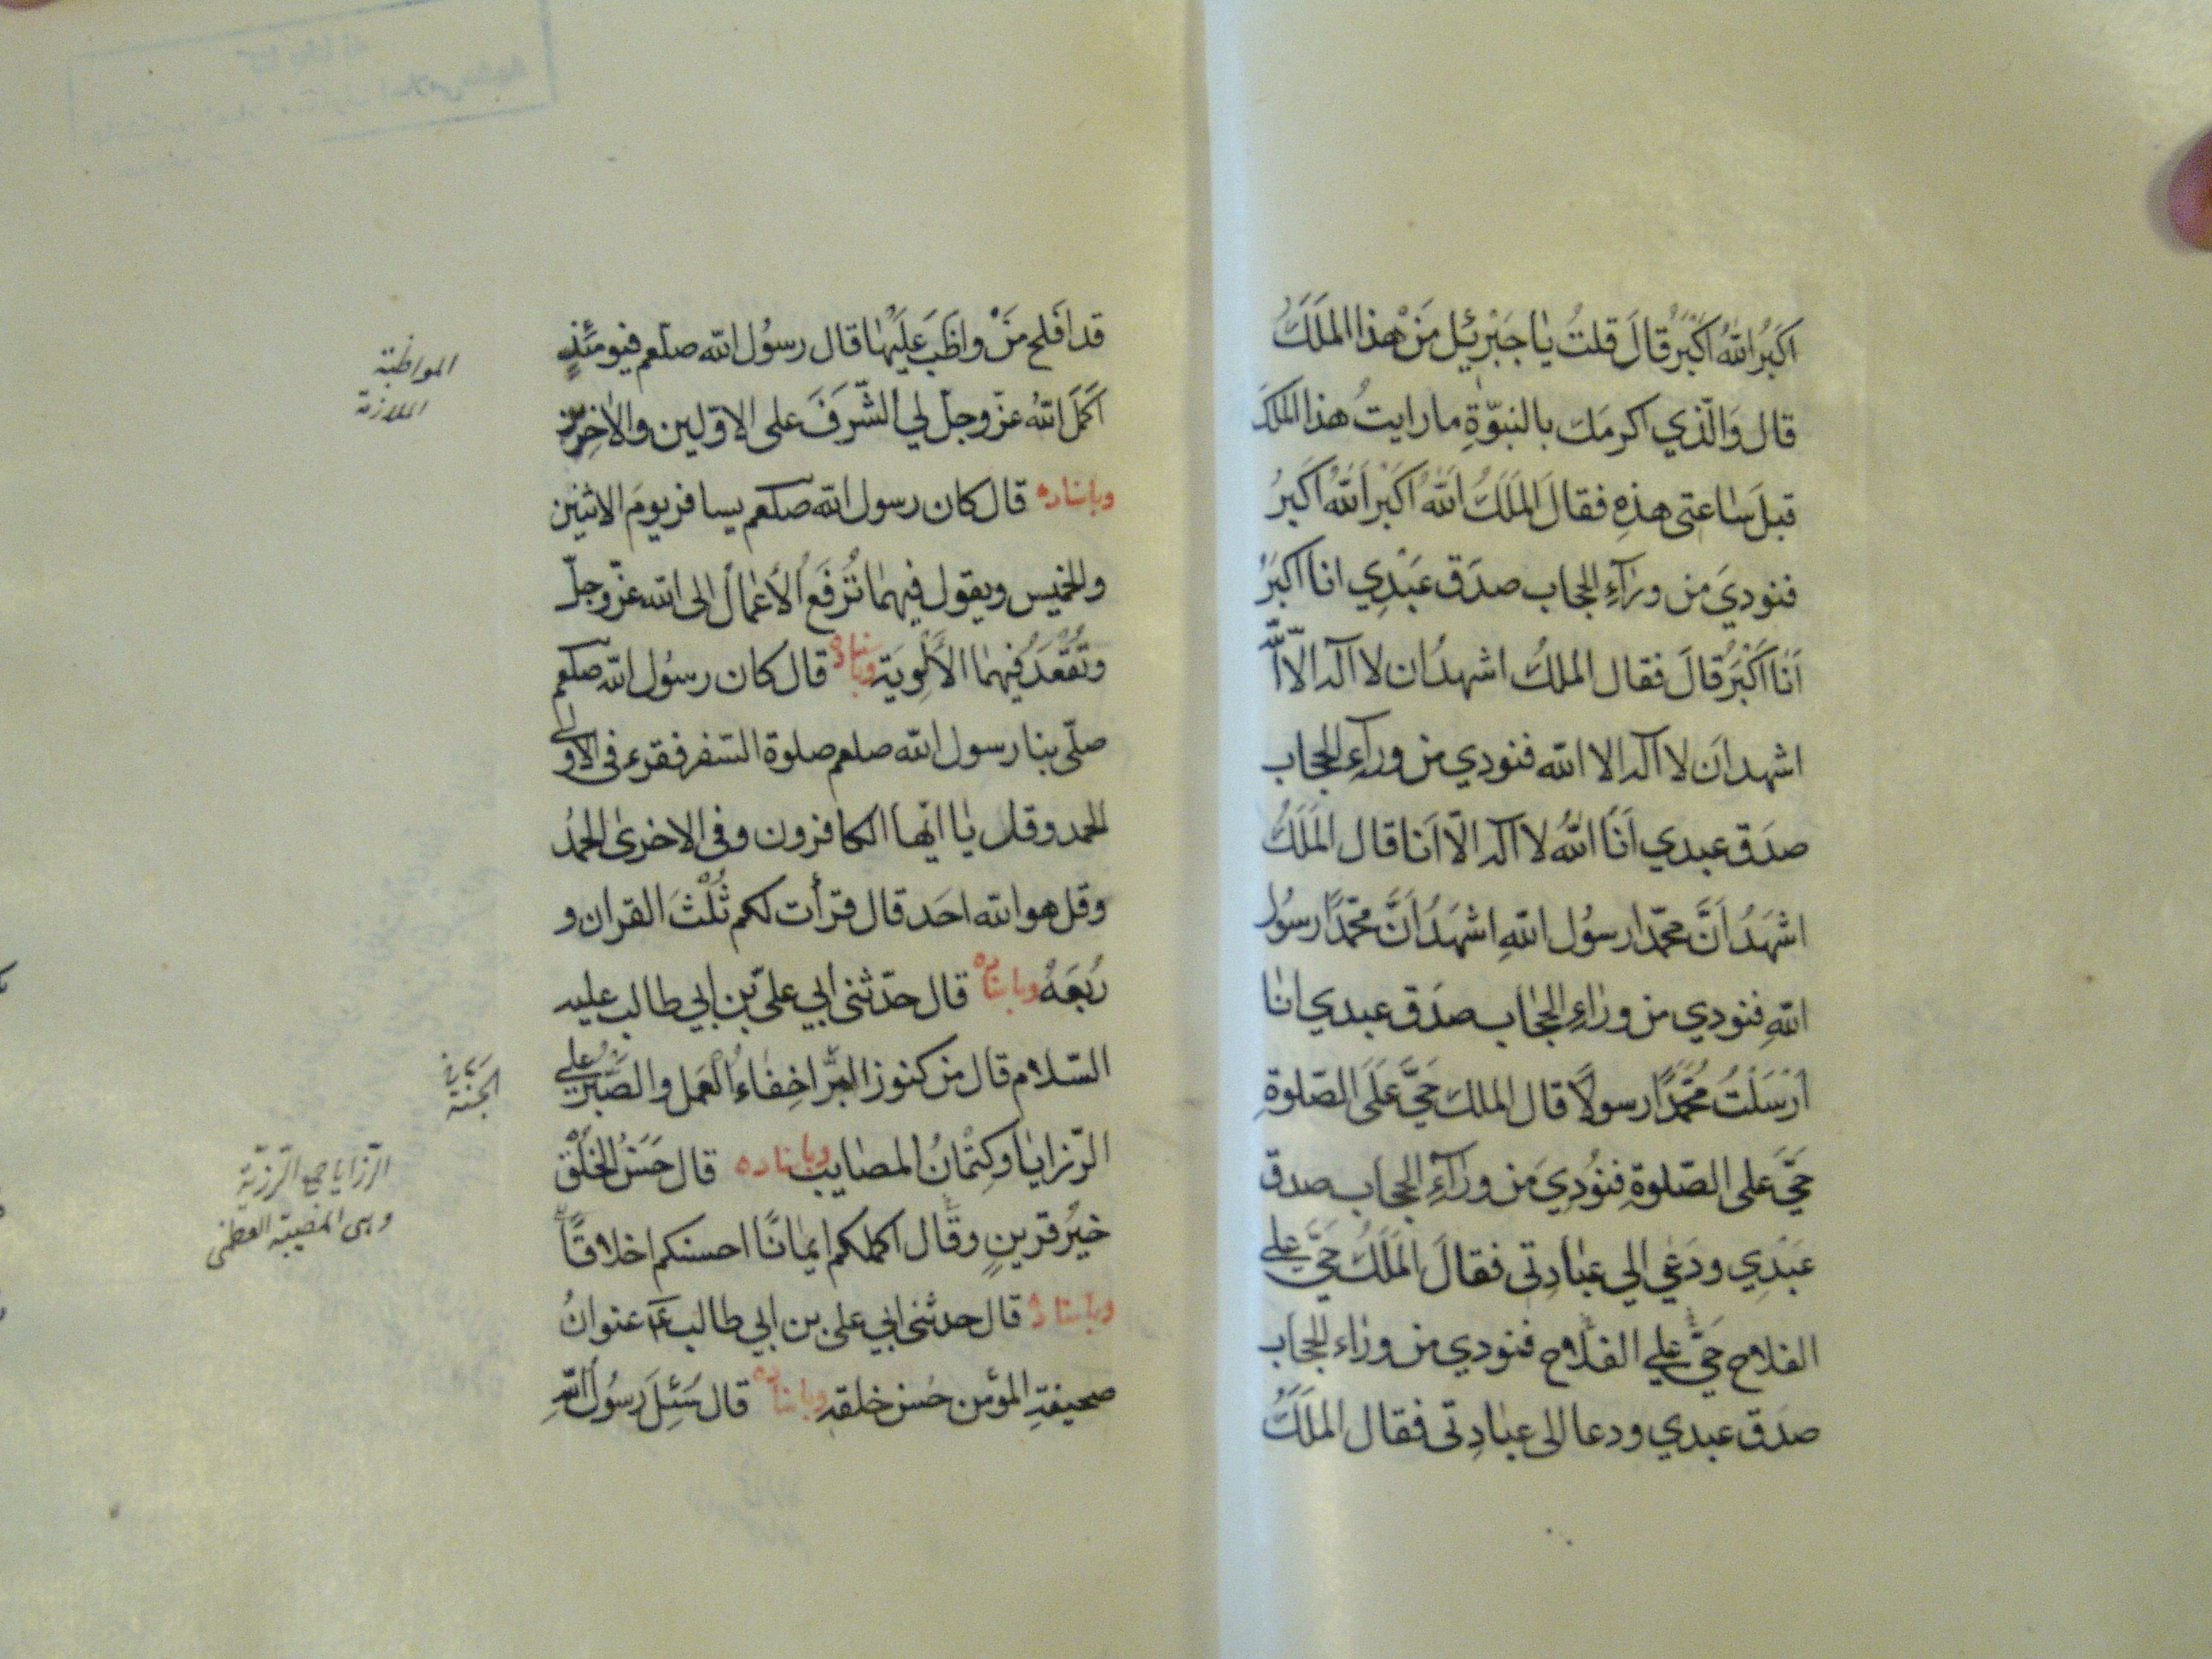 اكبَرُ اللّٰهُ اَكْبَرُ قالَ قلتُ يٰا جَبْرئيل مَنْ هٰذا الملَكُ
قال وَالّذي اكرمَك بالنبوّةِ ما رايتُ هذا الملَكَ
قبلَ سٰاعتى هذهِ فقالَ المَلَكُ اللّٰهُ اَكْبَر اللّٰهُ اَكْبَرُ
فنوديَ من ورٰآءِ الحجٰاب صدَق عَبْدِي انا اكْبَرُ
اَنٰا اَكْبَرُ قالَ فقال الملَكُ اشهدُ ان لا آله الّا اللّٰه
اشهد ان لا آله الا اللّٰه فنودي من ورآءِ الحجاب
صدَق عبدي اَنَا اللّٰهُ لا آله الّا اَنا قال المَلَكُ
اشهَدُ اَنَّ محمّدا رسُول اللّٰهِ اشهَدُ اَنَّ محمّدًا رسُول
اللّٰهِ فنودي من ورٰاءِ الحجٰاب صدَق عبدي انٰا
اَرْسَلْتُ مُحَمَّدًا رسولًا قال الملك حَيَّ عَلَى الصّلوةِ
حَيَّ على الصّلوةِ فنُودِيَ من ورآءِ الحجاب صدق
عَبْدِي ودَعٰي الي عبٰادتى فقالَ المَلَكُ حَيَّ علي
الفلاح حَيَّ علي الفلاح فنودي من ورٰاء الحجاب
صدَق عبدي ودعا الى عبٰادتى فقال الملَكُ
قد افَلح مَنْ واظَبَ عليهٰا قال رسوُل اللّٰه صلعم فيومئذٍ
اكمَلَ اللّٰهُ عزّوجلّ لي الشّرَفَ على الاوّلين والاٰخِرين
وباسناده قال كان رسول اللّٰه صلعم يسافر يومَ الاثنين
والخميس ويقول فيهمٰا تُرْفَعُ الأَعمٰالُ الى اللّٰه عزّوجلّ
وتُعْقَدُ فيهمٰا الأَلْوِيَة وباسناده قال كان رسوُل اللّٰه صلعم
صلّى بنا رسول اللّٰه صلعم صلوة السّفر فقرء فى الاولٰى
الحمد وقل يٰا ايّها الكافرون وفى الاخرىٰ الحمدُ
وقل هو اللّٰه احَد قال قرأت لكم ثُلْثَ القران و
رُبعَهُ وباسناده قال حدّثنى ابي علىّ بن ابي طالب عليه
السّلام قال من كنوز البِرّ اخِفٰاءُ العَمل والصَّبْرُ علي
الرّزايٰا وكِتْمٰانُ المصٰايب وباسناده قال حسَنُ الخُلْق
خيرُ قرينٍ وقٰال اكملكم ايمٰانًا احسنكم اخلاقًا
وباسناده قال حدثنى ابي على بن ابي طالب عنوانُ
صحيفةِ المؤمن حُسْن خلقه وباسناده قال سُئِلَ رسوُل اللّٰهِ
المواظبة
الملازمة
الجنّة
الرّزايا جمع الرّزيّة
وهى المصيبة العظمى